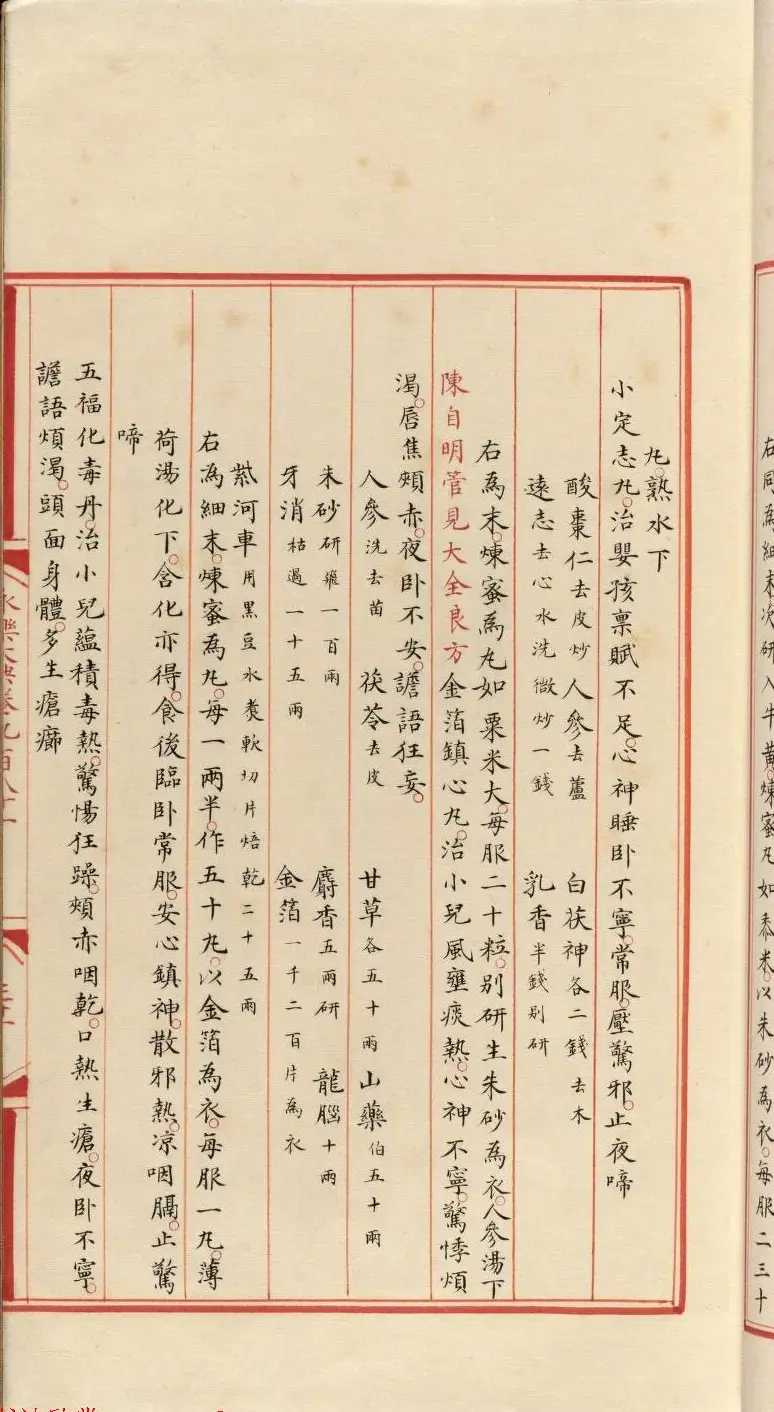 右同為細末次研入牛黃煉蜜丸如黍米以朱砂為衣每服二三十
丸熟水下
小定志丸治嬰孩稟賦不足心神睡卧不寧常服壓驚邪止夜啼
酸棗仁去皮炒 人參去蘆 白茯神各二錢去木
遠志去心水洗微炒一錢 乳香半錢別研
右為末煉蜜為丸如粟米大每服二十粒別研生朱砂為衣人參湯下
陳自明管見大全良方金箔鎮心丸治小兒風壅痰熱心神不寧驚悸煩
渴唇焦頰赤夜卧不安譫語狂妄
人參洗去苗 茯苓去皮 甘草各五十兩 山藥伯五十兩
朱砂研飛一百兩 麝香五兩研 龍腦十兩
牙消枯過一十五兩 金箔一千二百片為衣
紫河車用黑豆水煑軟切片焙乾二十五兩
右為細末煉蜜為丸每一兩半作五十丸以金箔為衣每服一丸薄
荷湯化下含化亦得食後臨卧常服安心鎮神散邪熱凉咽膈止驚
啼
五福化毒丹治小兒蘊積毒熱驚惕狂躁頰赤咽乾口熱生瘡夜卧不寧
譫語煩渴頭面身體多生瘡癤
永樂大典卷九百八十一